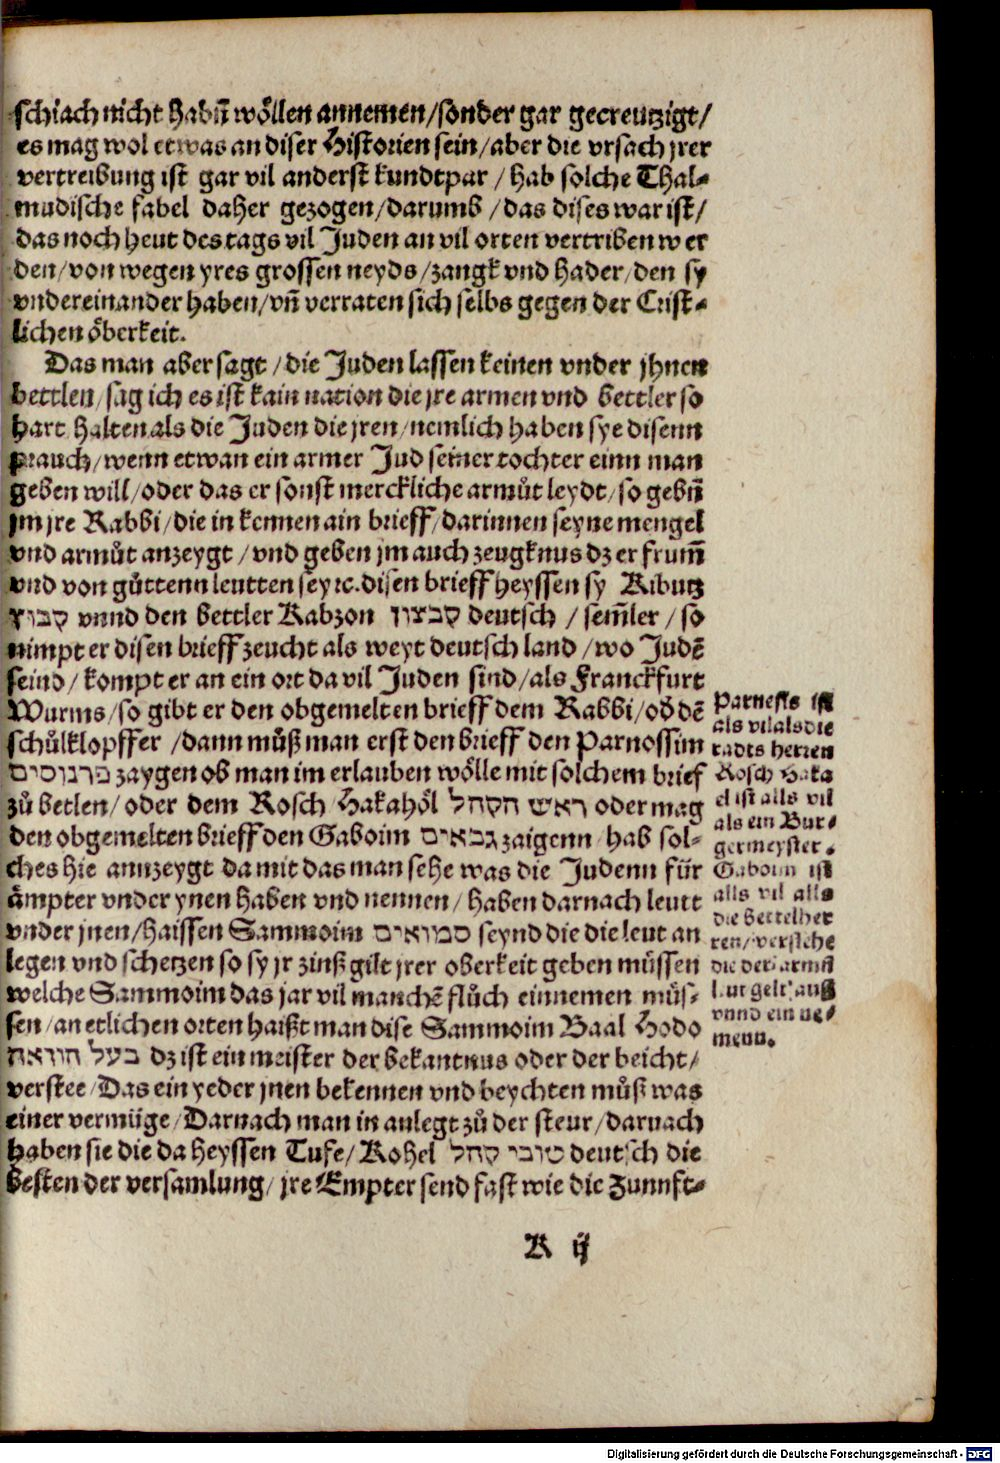 schiach nicht habn̄ wöllen annemen/sonder gar gecreutzigt/
es mag wol etwas an diser Historien sein/aber die vrsach jrer
vertreibung ist gar vil anderst kundtpar/hab solche Thal-
mudische fabel daher gezogen/darumb/das dises war ist/
das noch heut des tags vil Juden an vil orten vertriben wer
den/von wegen yres grossen neyds/zangk vnd hader/den sy
vndereinander haben/vn̄ verraten sich selbs gegen der Crist-
lichen öberkeit.
Das man aber sagt/die Juden lassen keinen vnder jhnen
bettlen/sag ich es ist kain nation die jre armen vnd bettler so
hart halten als die Juden die jren/nemlich haben sye disenn
prauch/wenn etwan ein armer Jud seiner tochter einn man
geben will/oder das er sonst merckliche armůt leydt/so gebn̄
jm jre Rabbi/die in kennen ain brieff/darinnen seyne mengel
vnd armůt anzeygt/vnd geben jm auch zeugknus dz er frum̄
vnd von gůttenn leutten sey ꝛc. disen brieff heyssen sy Kibutz
קבוץ vnnd den bettler Kabzon קבצון deutsch/sem̄ler/so
nimpt er disen brieff zeucht als weyt deutsch land/wo Judē
seind/kompt er an ein ort da vil Juden sind/als Franckfurt
Wurms/so gibt er den obgemelten brieff dem Rabbi/od dē
schůlklopffer/dann můß man erst den brieff den Parnossim
פרנוסים zaygen ob man im erlauben wölle mit solchem brief
zů betlen/oder dem Rosch Hakahöl ראש הקהל oder mag
den obgemelten brieff den Gaboim גבאים zaigenn/hab sol-
ches hie annzeygt damit das man sehe was die Judenn für
ämpter vnder ynen haben vnd nennen/haben darnach leutt
vnder jnen/haissen Sammoim סמואים seynd die die leut an
legen vnd schetzen so sy jr zinß gilt jrer oberkeit geben müssen
welche Sammoim das jar vil manchē flůch einnemen müs-
sen/an etlichen orten haißt man dise Sammoim Baal Hodo
בעל הודאה dz ist ein meister der bekantnus oder der beicht/
verstee/Das ein yeder jnen bekennen vnd beychten můß was
einer vermüge/Darnach man in anlegt zů der steur/darnach
haben sie die da heyssen Tufe/Kohel טובי קהל deutsch die
besten der versamlung/jre Empter send fast wie die Zunnft-
Parnesss ist
als vil als die
radts herren
Rosch Haka
el ist alls vil
als ein Bur-
germeyster.
Gaboim ist
alls vil alls
die bettelher
ren/verstehe
die der armen
leut gelt auß
vnnd ein ne-
menn.
K ij
Digitalisierung gefördert durch die Deutsche Forschungsgemeinschaft - DFG